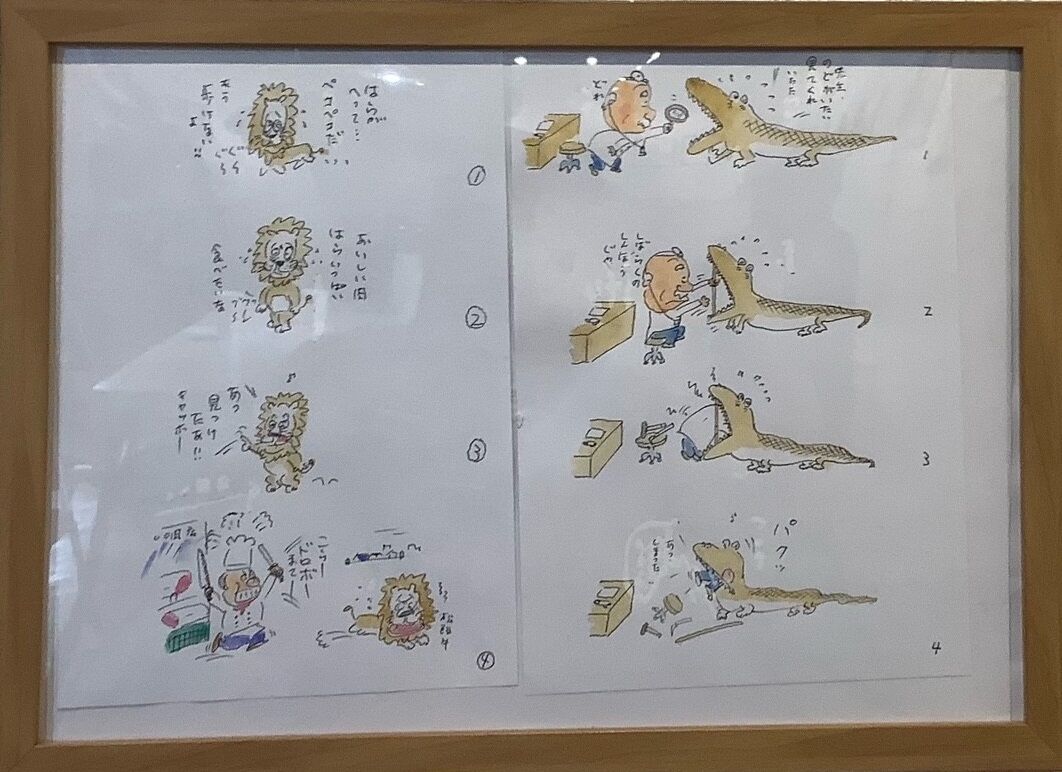 はらが
へって…
ペコペコだ…
もう
歩けない
よ
①
おいしい肉
はらいっぱい
食べたいな
②
あっ
見つけ
たぁ!!
キャッホー
③
コラー
ドロボー
まてー
④
先生、
のどがいたい
見てくれ
いたた
どれ
1
しばらくの
しんぼう
じゃ
2
3
パクッ
あっ
しまった
4